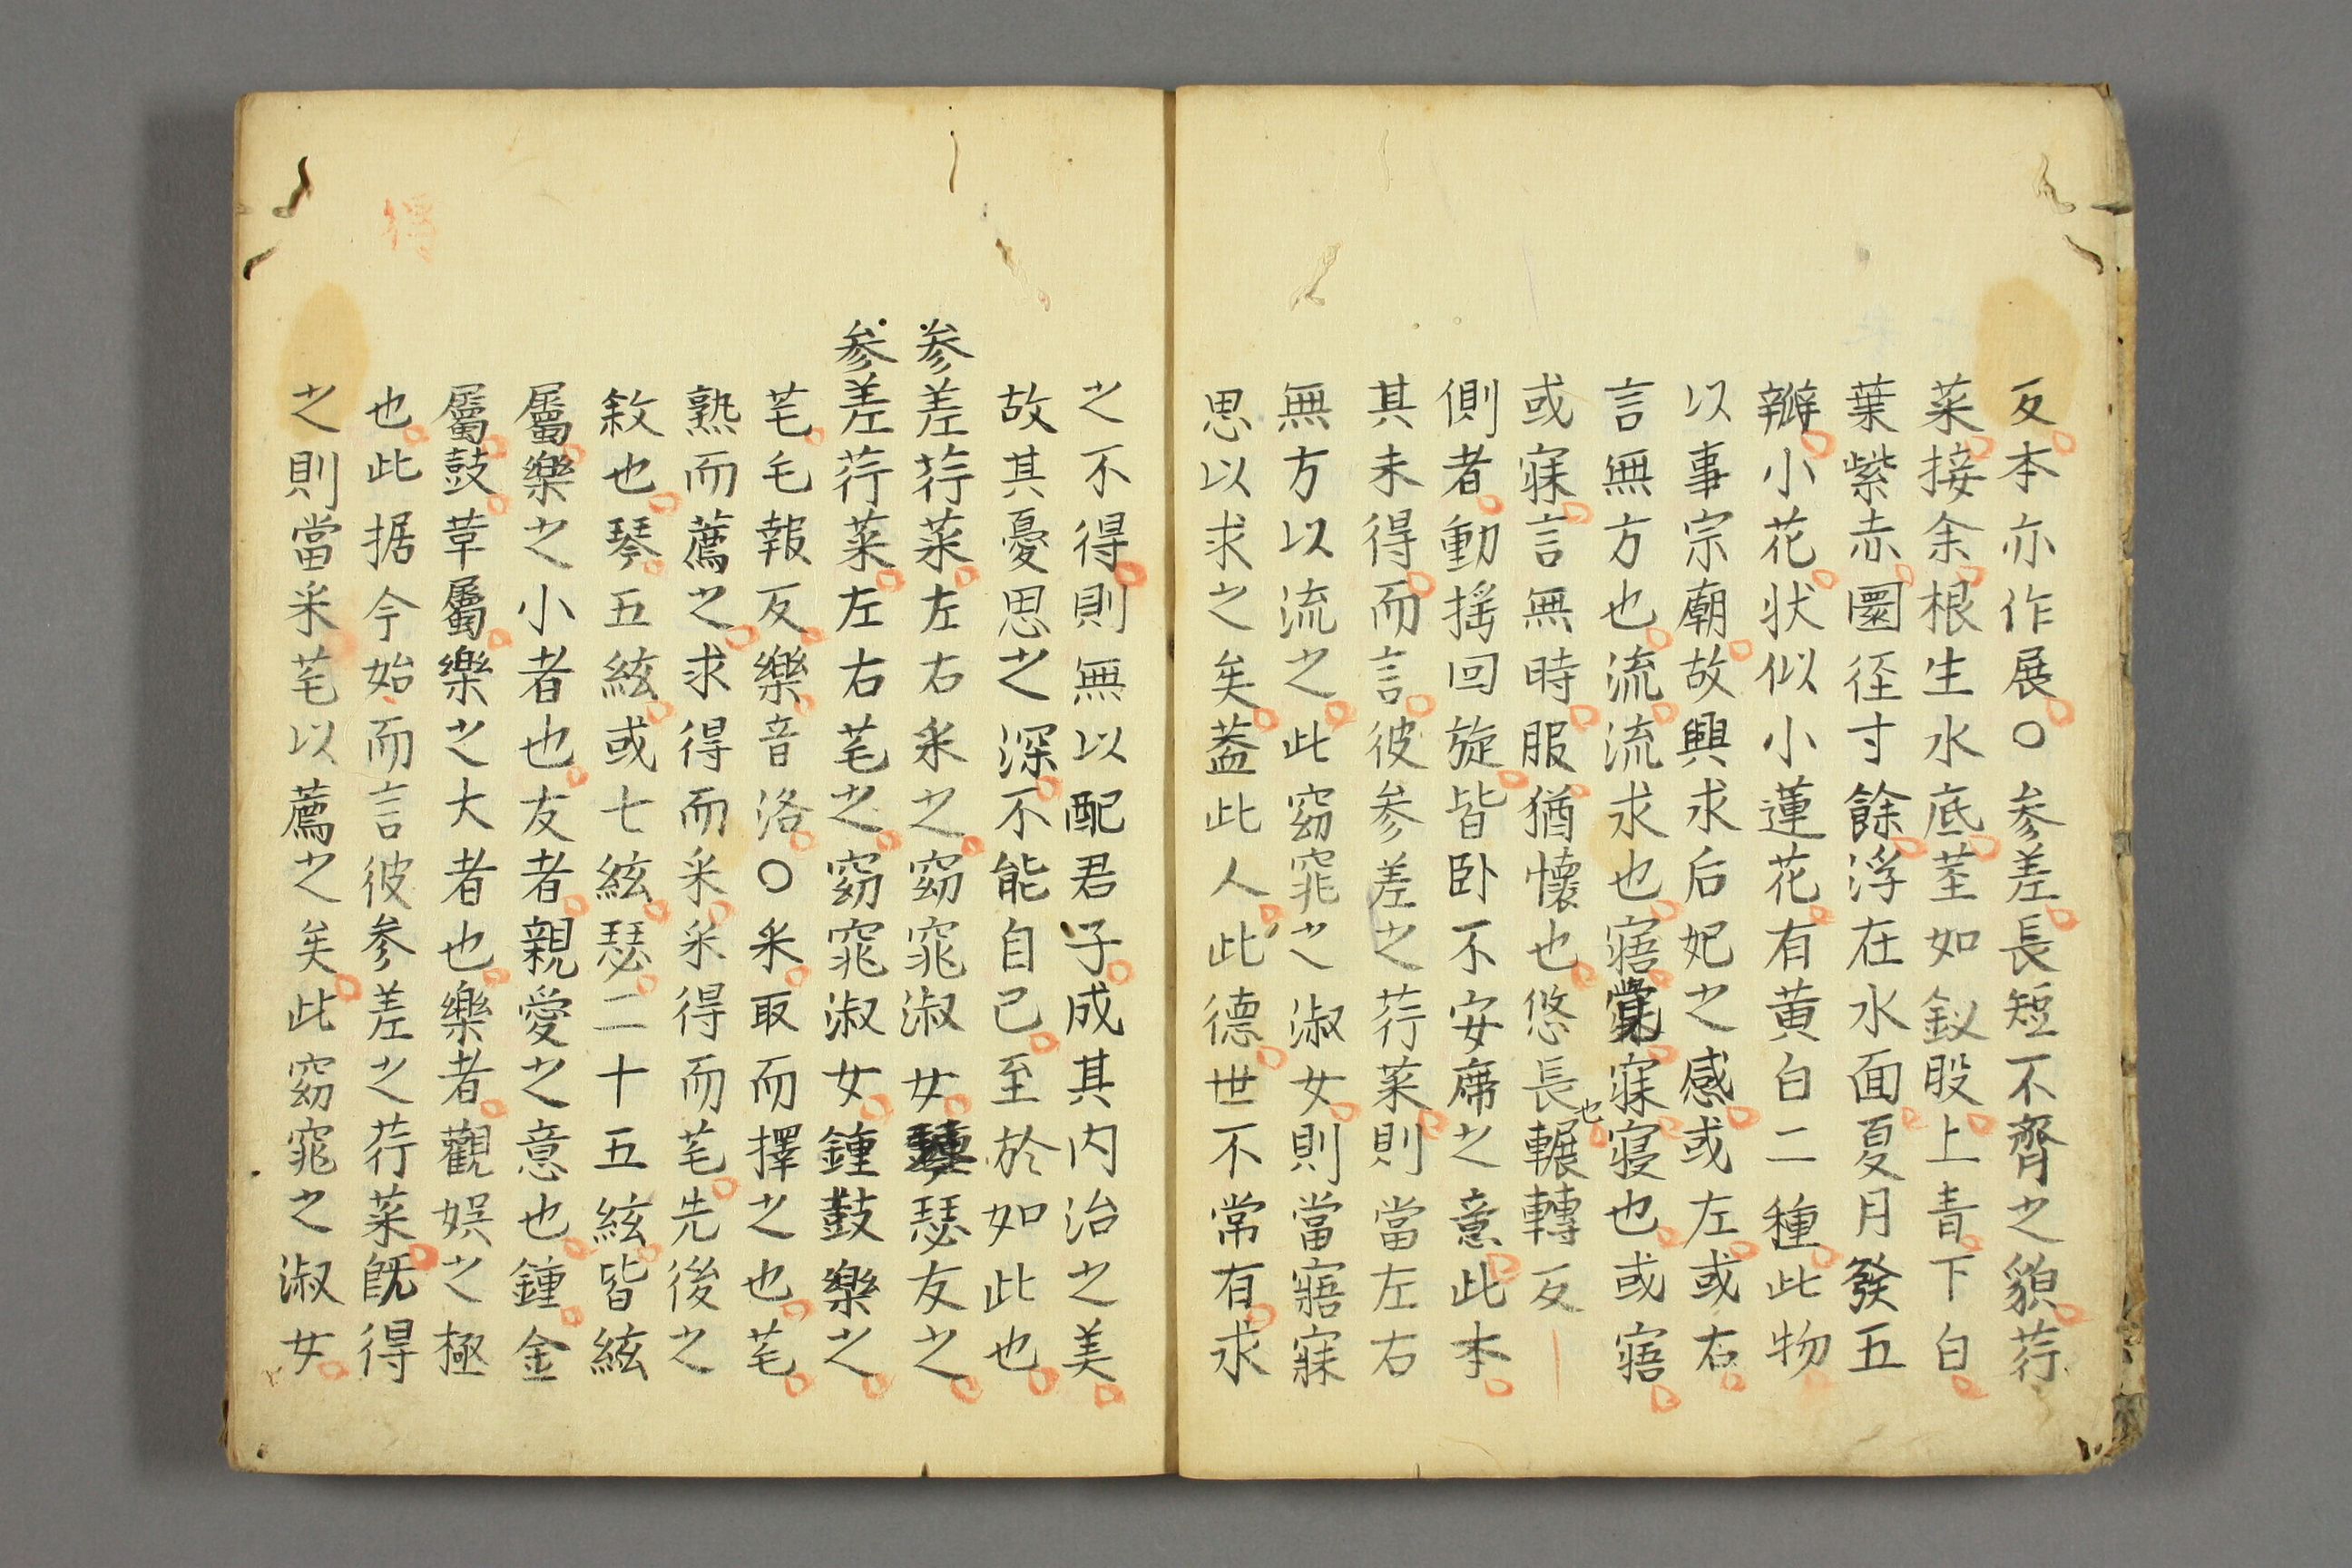 反本亦作展○参差長短不齊之貌荇
菜接余根生水底莖如釵股上青下白
葉紫赤圜徑寸餘浮在水面夏月發五
瓣小花状似小蓮花有黄白二種此物
以事宗廟故興求后妃之感或左或右
言無方也流流求也寤覺寐寝也或寤
或寐言無時服猶懷也悠長也輾轉反
側者動揺回旋皆卧不安席之意此本
其未得而言彼参差之荇菜則當左右
無方以流之此窈窕之淑女則當寤寐
思以求之矣蓋此人此德世不常有求
之不得則無以配君子成其内治之美
故其憂思之深不能自己至於如此也
参差荇菜左右采之窈窕淑女琴瑟友之
参差荇菜左右芼之窈窕淑女鍾鼓樂之
芼毛報反樂音洛○采取而擇之也芼
熟而薦之求得而采采得而芼先後之
敘也琴五絃或七絃瑟二十五絃皆絃
屬樂之小者也友者親愛之意也鍾金
屬鼓草屬樂之大者也樂者觀娯之極
也此据今始而言彼参差之荇菜既得
得
之則當采芼以薦之矣此窈窕之淑女